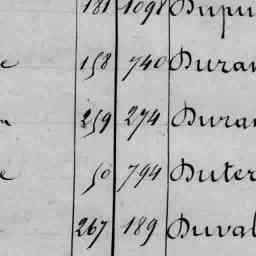 181 1098 Dupu
e 158 740 Duran
n 259 274 Duran
e 50 794 Duter
267 189 Duval